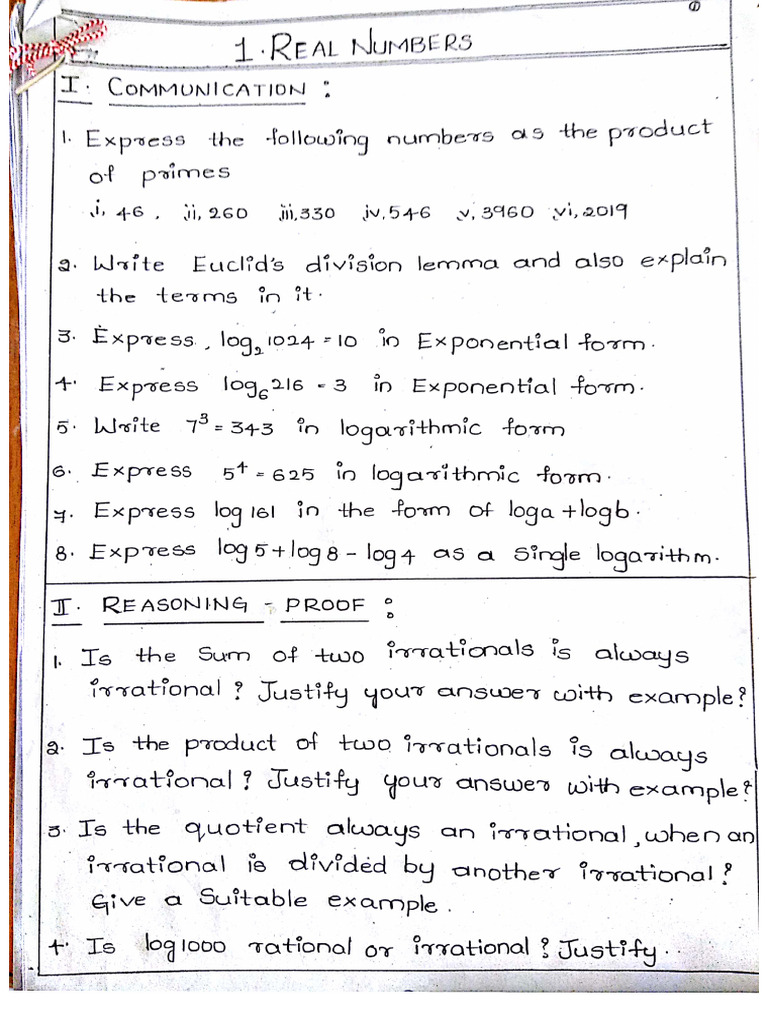 1
1. REAL NUMBERS
I. COMMUNICATION :
1. Express the following numbers as the product
of primes
i, 46, ii, 260 iii, 330 iv, 546 v, 3960 vi, 2019
2. Write Euclid's division lemma and also explain
the terms in it.
3. Express, log₂1024 = 10 in Exponential form.
4. Express log₆216 = 3 in Exponential form.
5. Write 7³ = 343 in logarithmic form
6. Express 5⁴ = 625 in logarithmic form.
7. Express log 161 in the form of loga + logb.
8. Express log5 + log8 - log4 as a single logarithm.
II. REASONING - PROOF :
1. Is the Sum of two irrationals is always
irrational ? Justify your answer with example?
2. Is the product of two irrationals is always
irrational ? Justify your answer with example?
3. Is the quotient always an irrational, when an
irrational is divided by another irrational?
Give a Suitable example.
4. Is log1000 rational or irrational ? Justify.